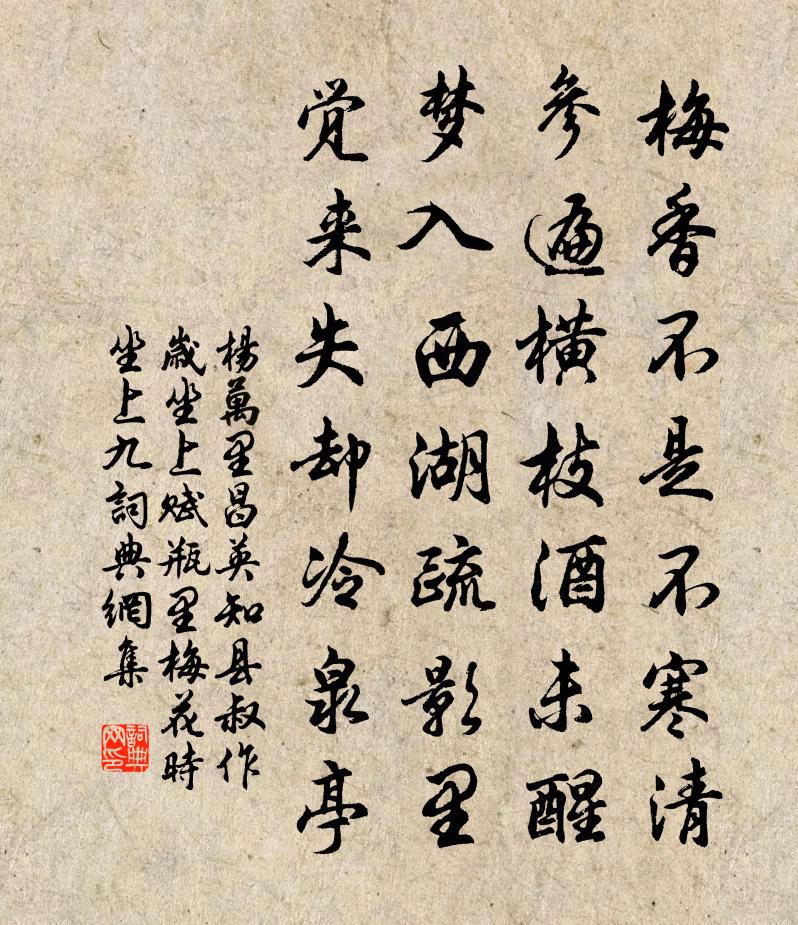 梅香不是不寒清
参遍横枝酒未醒
梦入西湖疏影里
觉来失却冷泉亭
楊萬里昌英知县叔作
歲坐上赋瓶里梅花時
坐上九詞典網集
詞典网印